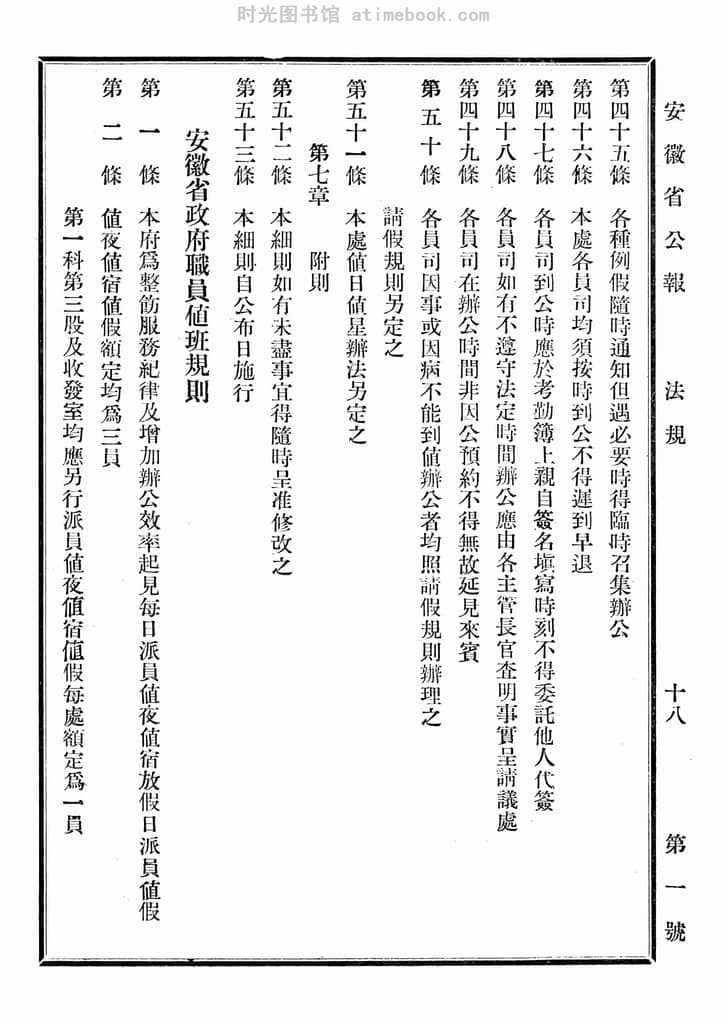 时光图书馆 atimebook.com
安徽省公報 法規 十八 第一號
第四十五條 各種例假隨時通知但遇必要時得臨時召集辦公
第四十六條 本處各員司均須按時到公不得遲到早退
第四十七條 各員司到公時應於考勤簿上親自簽名塡寫時刻不得委託他人代簽
第四十八條 各員司如有不遵守法定時間辦公應由各主管長官查明事實呈請議處
第四十九條 各員司在辦公時間非因公預約不得無故延見來賓
第五十條 各員司因事或因病不能到値辦公者均照請假規則辦理之
請假規則另定之
第五十一條 本處値日値星辦法另定之
第七章 附則
第五十二條 本細則如有未盡事宜得隨時呈准修改之
第五十三條 本細則自公布日施行
安徽省政府職員値班規則
第一條 本府爲整筋服務紀律及增加辦公效率起見每日派員値夜値宿放假日派員値假
第二條 値夜値宿値假額定均爲三員
第一科第三股及收發室均應另行派員値夜値宿値假每處額定爲一員